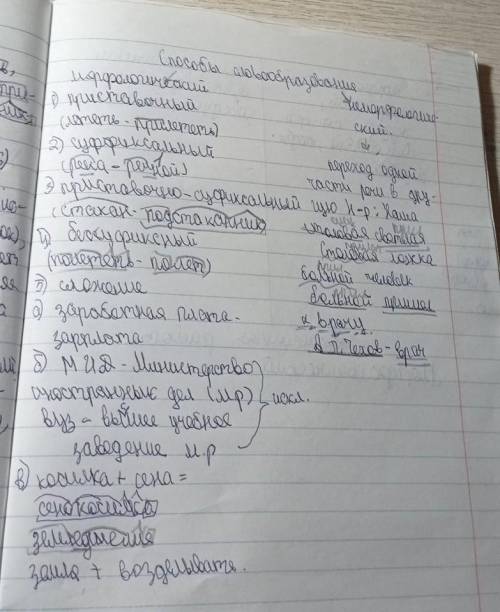 Способы словообразования
морфологический
1) приставочный
(лететь - прилететь)
2) суффиксальный
(река - речной)
3) приставочно-суфиксальный
(стакан - подстаканник)
4) бессуфиксный
(полететь - полет)
5) сложение
а) заработная плата -
зарплата
б) МИД - Министерство
иностранных дел (м.р)
вуз - высшее учебное
заведение м.р
искл.
в) косилка + сена =
сенокосилка
земледелие
земля + возделывать.
неморфологиче-
ский.
↓
переход одной
части речи в дру-
гую Н-р: Наша
столовая светлая
Столовая ложка
больной человек
больной пришел
к врачу.
А.П. Чехов - врач